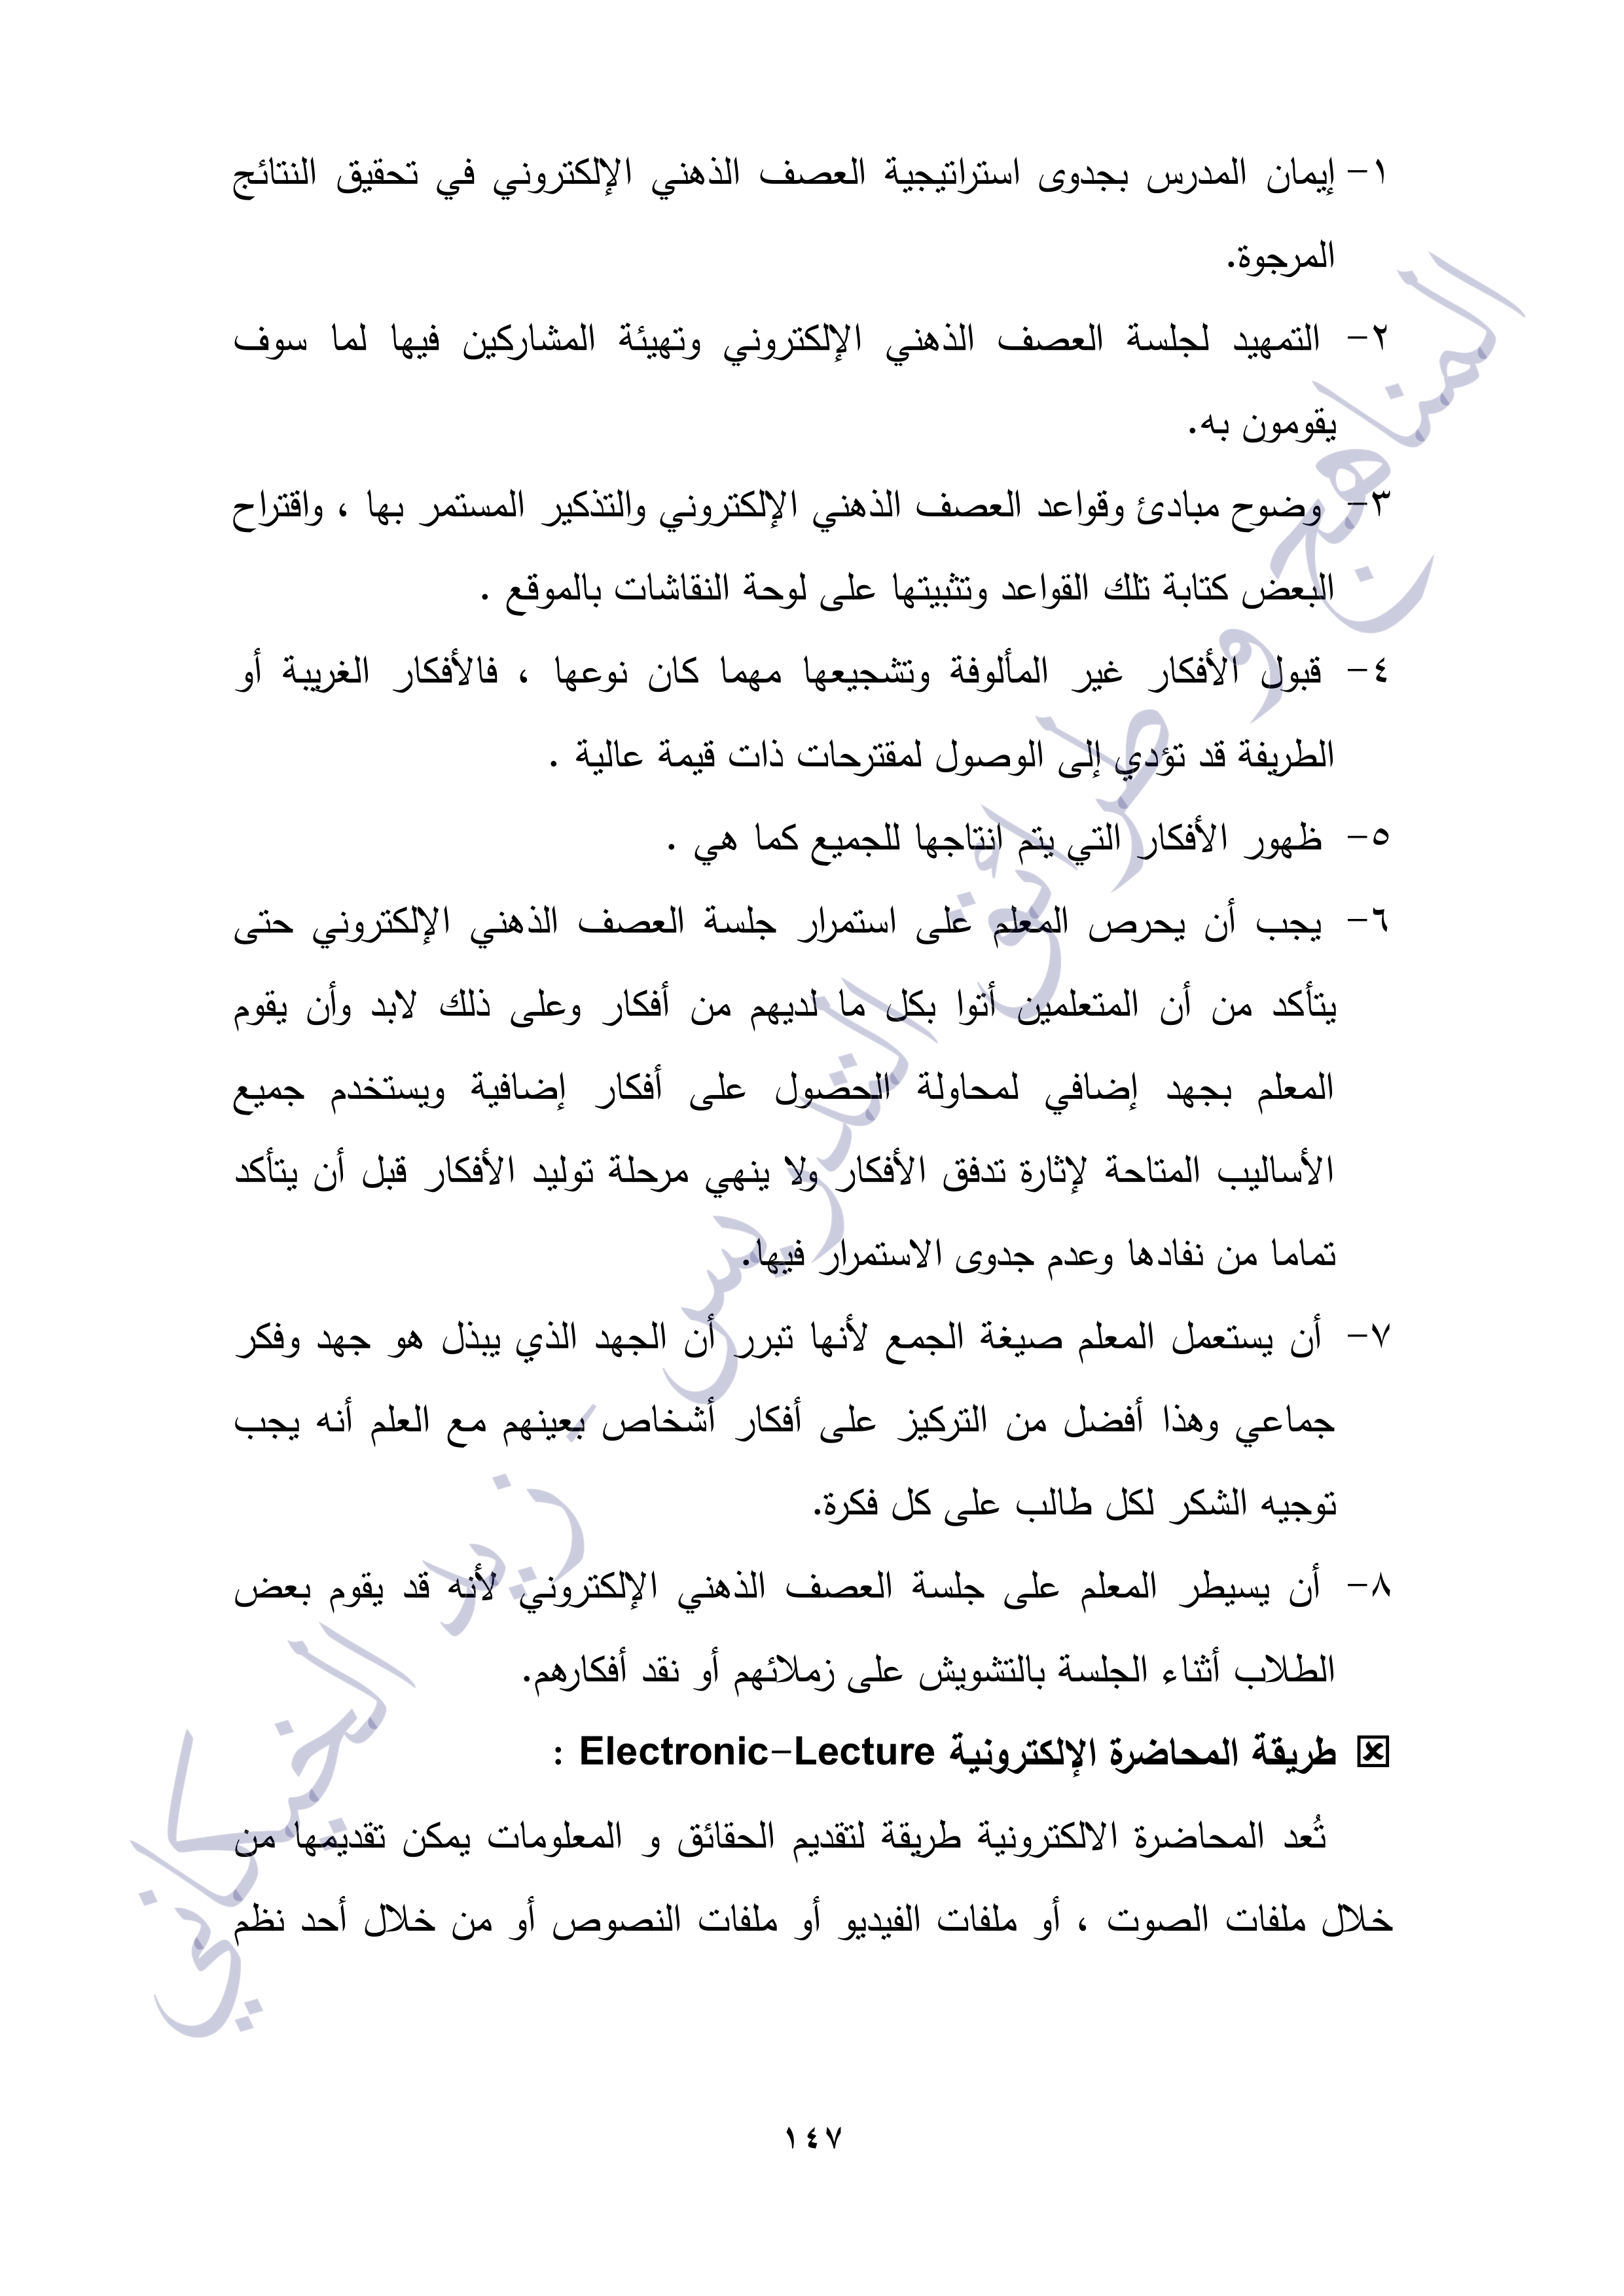 ١- إيمان المدرس بجدوى استراتيجية العصف الذهني الإلكتروني في تحقيق النتائج
المرجوة.
٢- التمهيد لجلسة العصف الذهني الإلكتروني وتهيئة المشاركين فيها لما سوف
يقومون به.
٣- وضوح مبادئ وقواعد العصف الذهني الإلكتروني والتذكير المستمر بها ، واقتراح
البعض كتابة تلك القواعد وتثبيتها على لوحة النقاشات بالموقع .
٤- قبول الأفكار غير المألوفة وتشجيعها مهما كان نوعها ، فالأفكار الغريبة أو
الطريفة قد تؤدي إلى الوصول لمقترحات ذات قيمة عالية .
٥- ظهور الأفكار التي يتم انتاجها للجميع كما هي .
٦- يجب أن يحرص المعلم على استمرار جلسة العصف الذهني الإلكتروني حتى
يتأكد من أن المتعلمين أتوا بكل ما لديهم من أفكار وعلى ذلك لابد وأن يقوم
المعلم بجهد إضافي لمحاولة الحصول على أفكار إضافية ويستخدم جميع
الأساليب المتاحة لإثارة تدفق الأفكار ولا ينهي مرحلة توليد الأفكار قبل أن يتأكد
تماما من نفادها وعدم جدوى الاستمرار فيها.
٧- أن يستعمل المعلم صيغة الجمع لأنها تبرر أن الجهد الذي يبذل هو جهد وفكر
جماعي وهذا أفضل من التركيز على أفكار أشخاص بعينهم مع العلم أنه يجب
توجيه الشكر لكل طالب على كل فكرة.
٨- أن يسيطر المعلم على جلسة العصف الذهني الإلكتروني لأنه قد يقوم بعض
الطلاب أثناء الجلسة بالتشويش على زملائهم أو نقد أفكارهم.
طريقة المحاضرة الإلكترونية Electronic-Lecture :
تُعد المحاضرة الالكترونية طريقة لتقديم الحقائق و المعلومات يمكن تقديمها من
خلال ملفات الصوت ، أو ملفات الفيديو أو ملفات النصوص أو من خلال أحد نظم
١٤٧
المناهج و طرائق التدريس - زيد الخيكاني